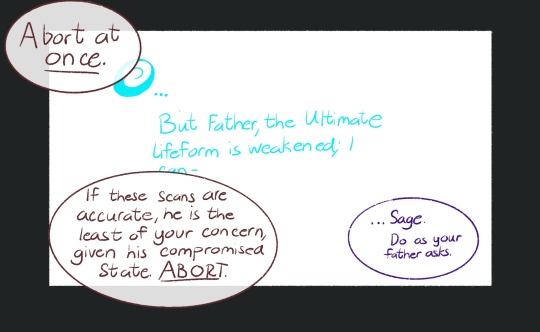 Abort at
once.
...
But Father, the Ultimate
lifeform is weakened; I
can-
If these scans are
accurate, he is the
least of your concern,
given his compromised
state. ABORT.
... Sage.
Do as your
father asks.